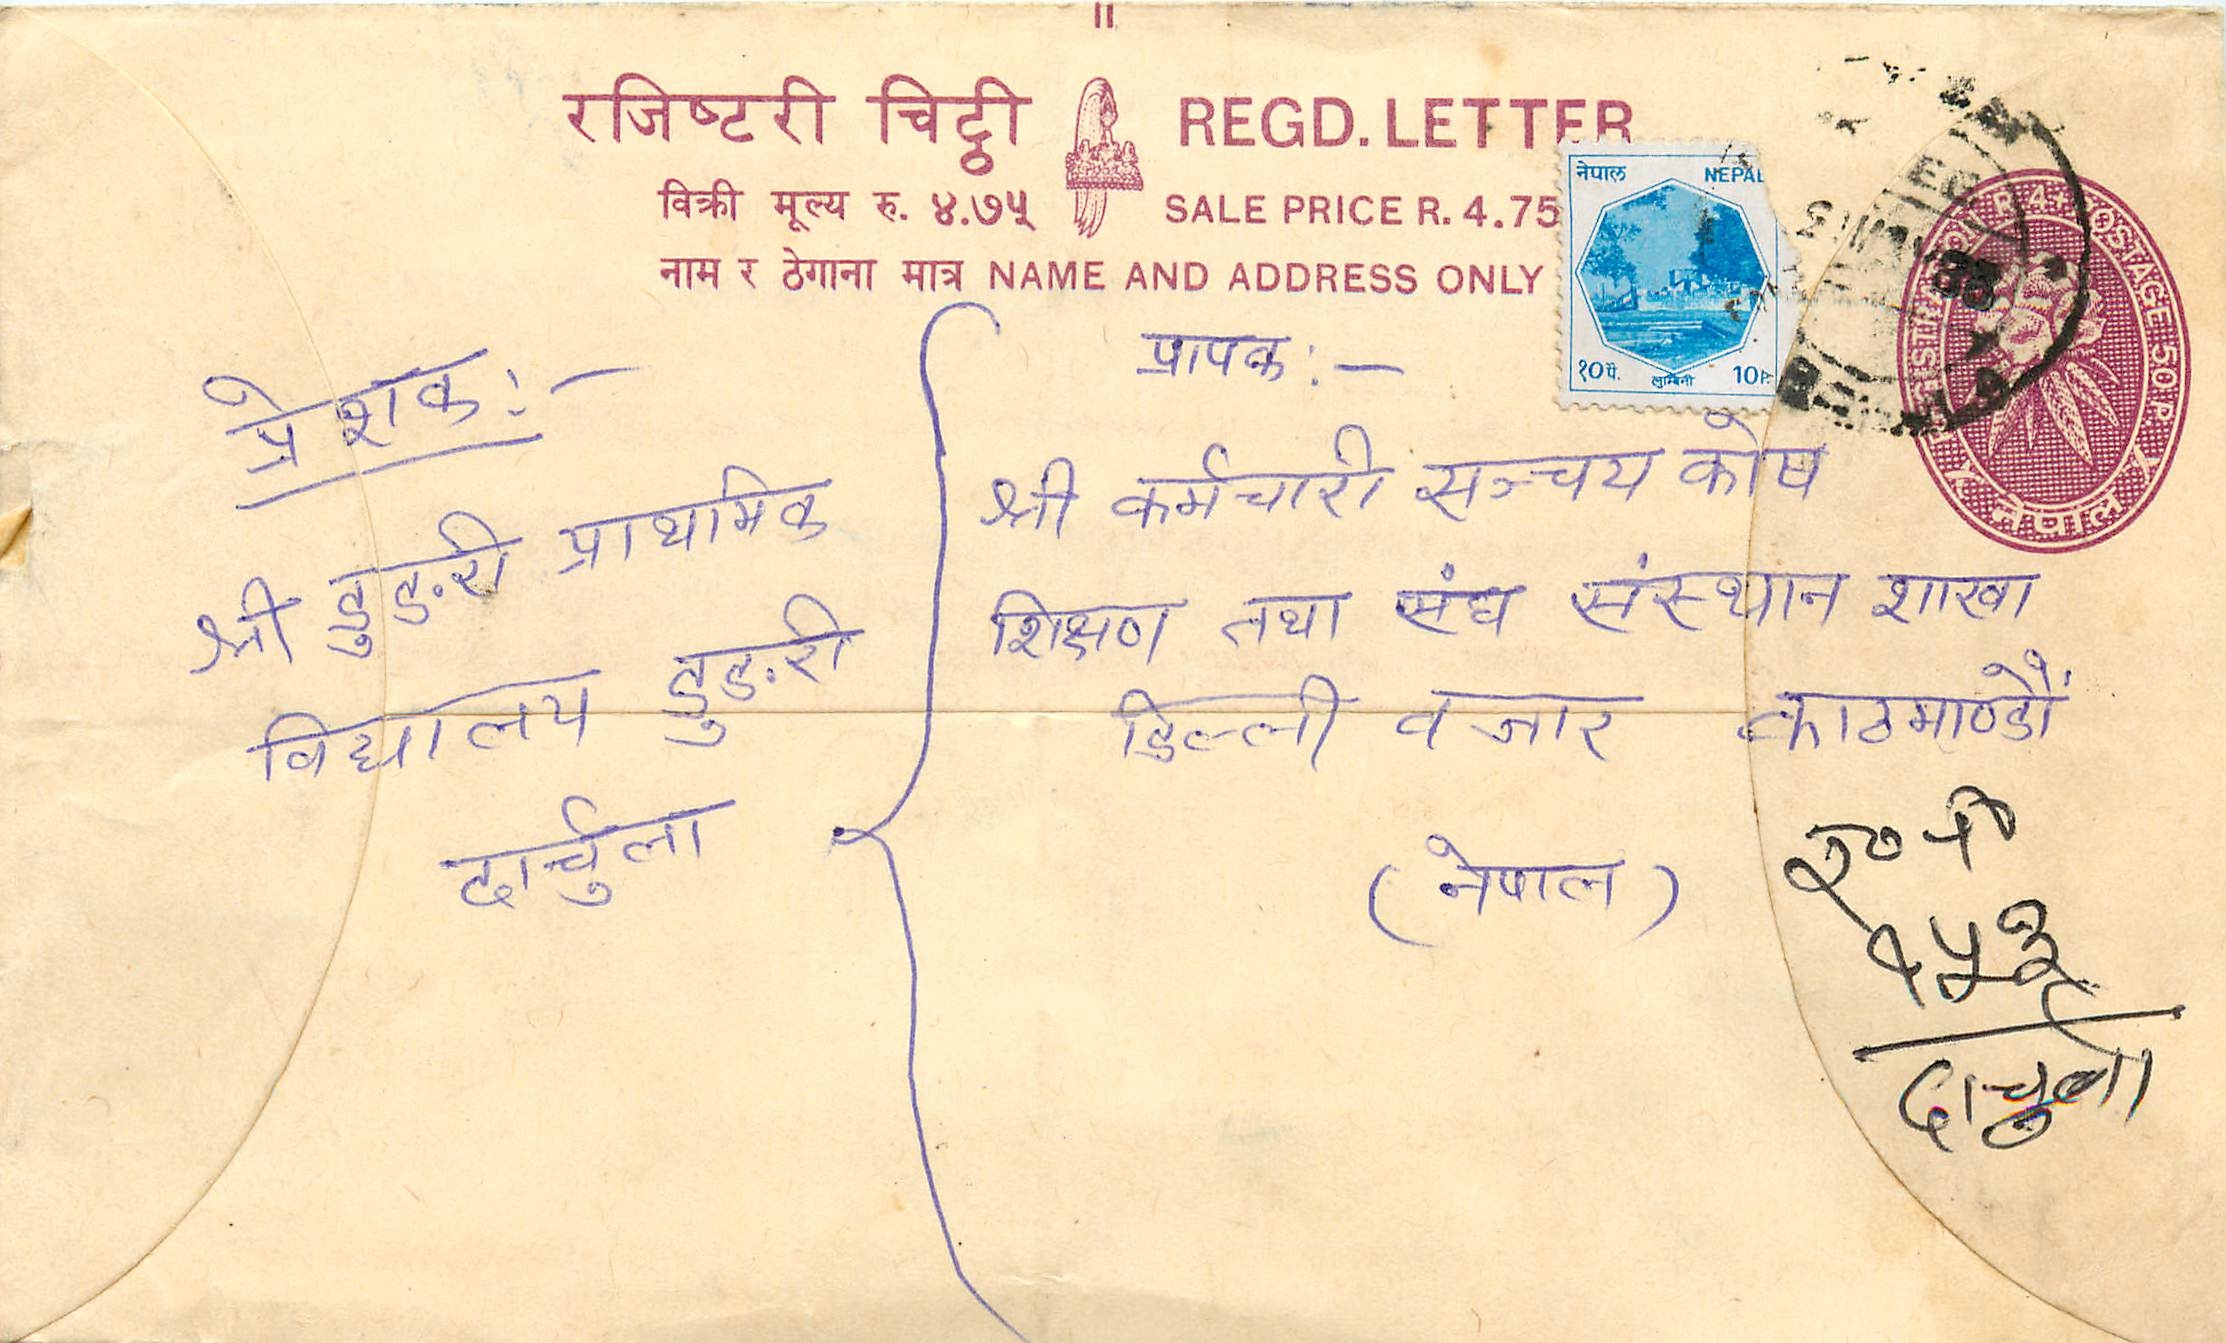 रजिष्टरी चिट्ठी REGD. LETTER
विक्री मूल्य रु. ४.७५ SALE PRICE R. 4.75
नाम र ठेगाना मात्र NAME AND ADDRESS ONLY
नेपाल NEPAL
१० पै. लुम्बिनी 10 P.
REGISTRATION R. 4 POSTAGE 50 P.
नेपाल
प्रेशक:-
श्री डुङ.री प्राथमिक
विद्यालय डुङ.री
दार्चुला
प्रापक:-
श्री कर्मचारी सञ्चय कोष
शिक्षण तथा संघ संस्थान शाखा
डिल्ली वजार काठमाण्डौं
(नेपाल)
१५३
दार्चुला